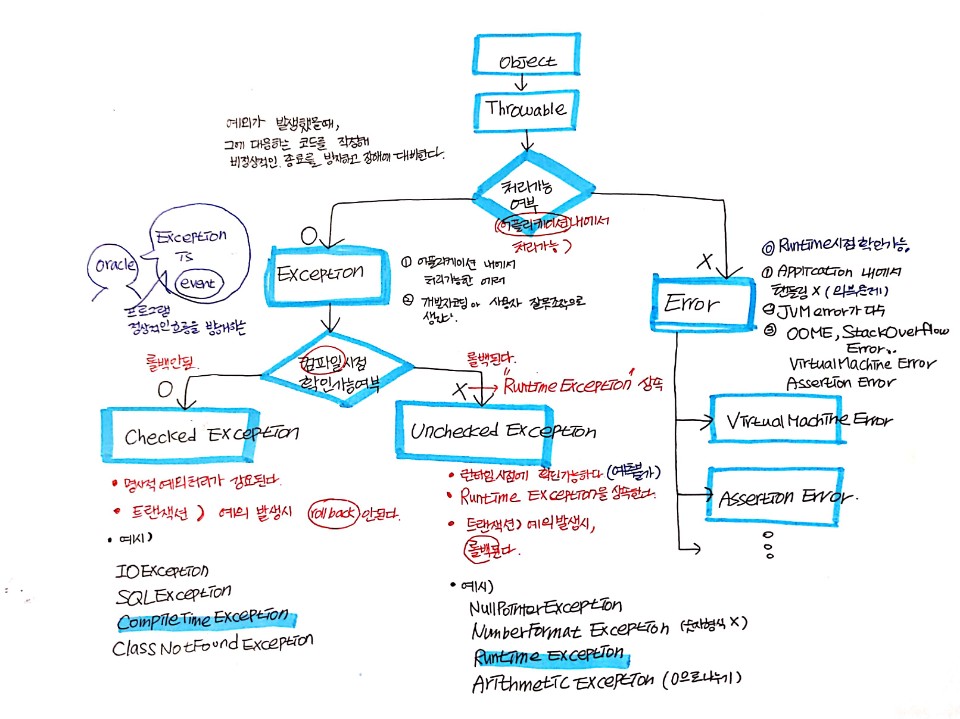 Object
Throwable
예외가 발생했을때,
그에 대응하는 코드를 작성해
비정상적인 종료를 방지하고 장애에 대비한다.
처리가능
여부
(어플리케이션 내에서
처리가능)
O
X
Exception
IS
event
Oracle
프로그램
정상적인 흐름을 방해하는
Exception
① 어플리케이션 내에서
처리가능한 에러
② 개발자코딩 or 사용자 잘못조작으로
Error
⓪ Runtime시점 확인가능.
① Application 내에서
핸들링 X (외부문제)
② JVM error가 다수
③ OOME, StackOverflow
Error..
VirtualMachine Error
Assertion Error
컴파일시점
확인가능여부
롤백안됨.
O
롤백된다.
X
"Runtime Exception" 상속
Checked Exception
Unchecked Exception
Virtual Machine Error
Assertion Error.
• 명시적 예외처리가 강요된다.
• 트랜잭션) 예외 발생시 roll back 안된다.
• 예시)
IOException
SQLException
CompileTime Exception
ClassNotFound Exception
• 런타임시점에 확인가능하다 (예측불가)
• Runtime Exception를 상속한다.
• 트랜잭션) 예외발생시,
롤백된다.
• 예시)
NullPointerException
NumberFormat Exception (숫자형식 X)
Runtime Exception
Arithmetic Exception (0으로나누기)